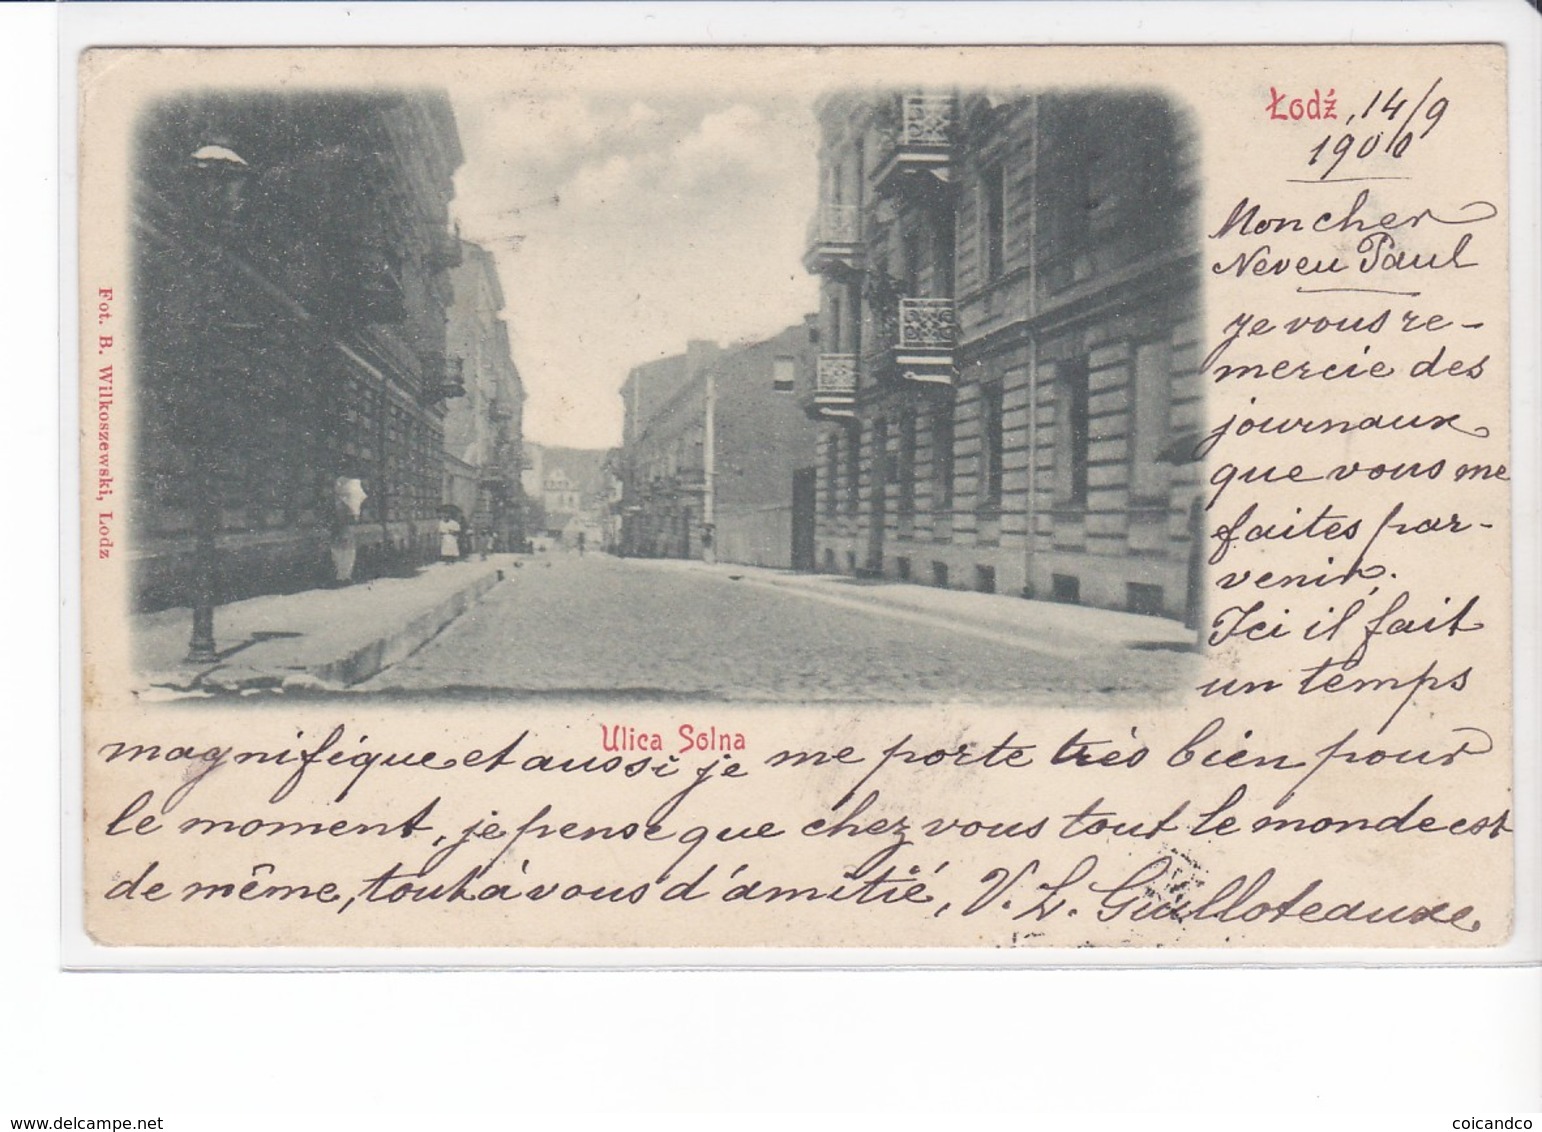 Łodź, 14/9
1900
Mon cher
Neveu Paul
je vous re-
mercie des
journaux
que vous me
faites par-
venir.
Ici il fait
un temps
magnifique et aussi je me porte très bien pour
le moment, je pense que chez vous tout le monde est
de même, tout à vous d'amitié, V. L. Guilloteauxe
Ulica Solna
Fot. B. Wilkoszewski, Lodz
www.delcampe.net
coicandco